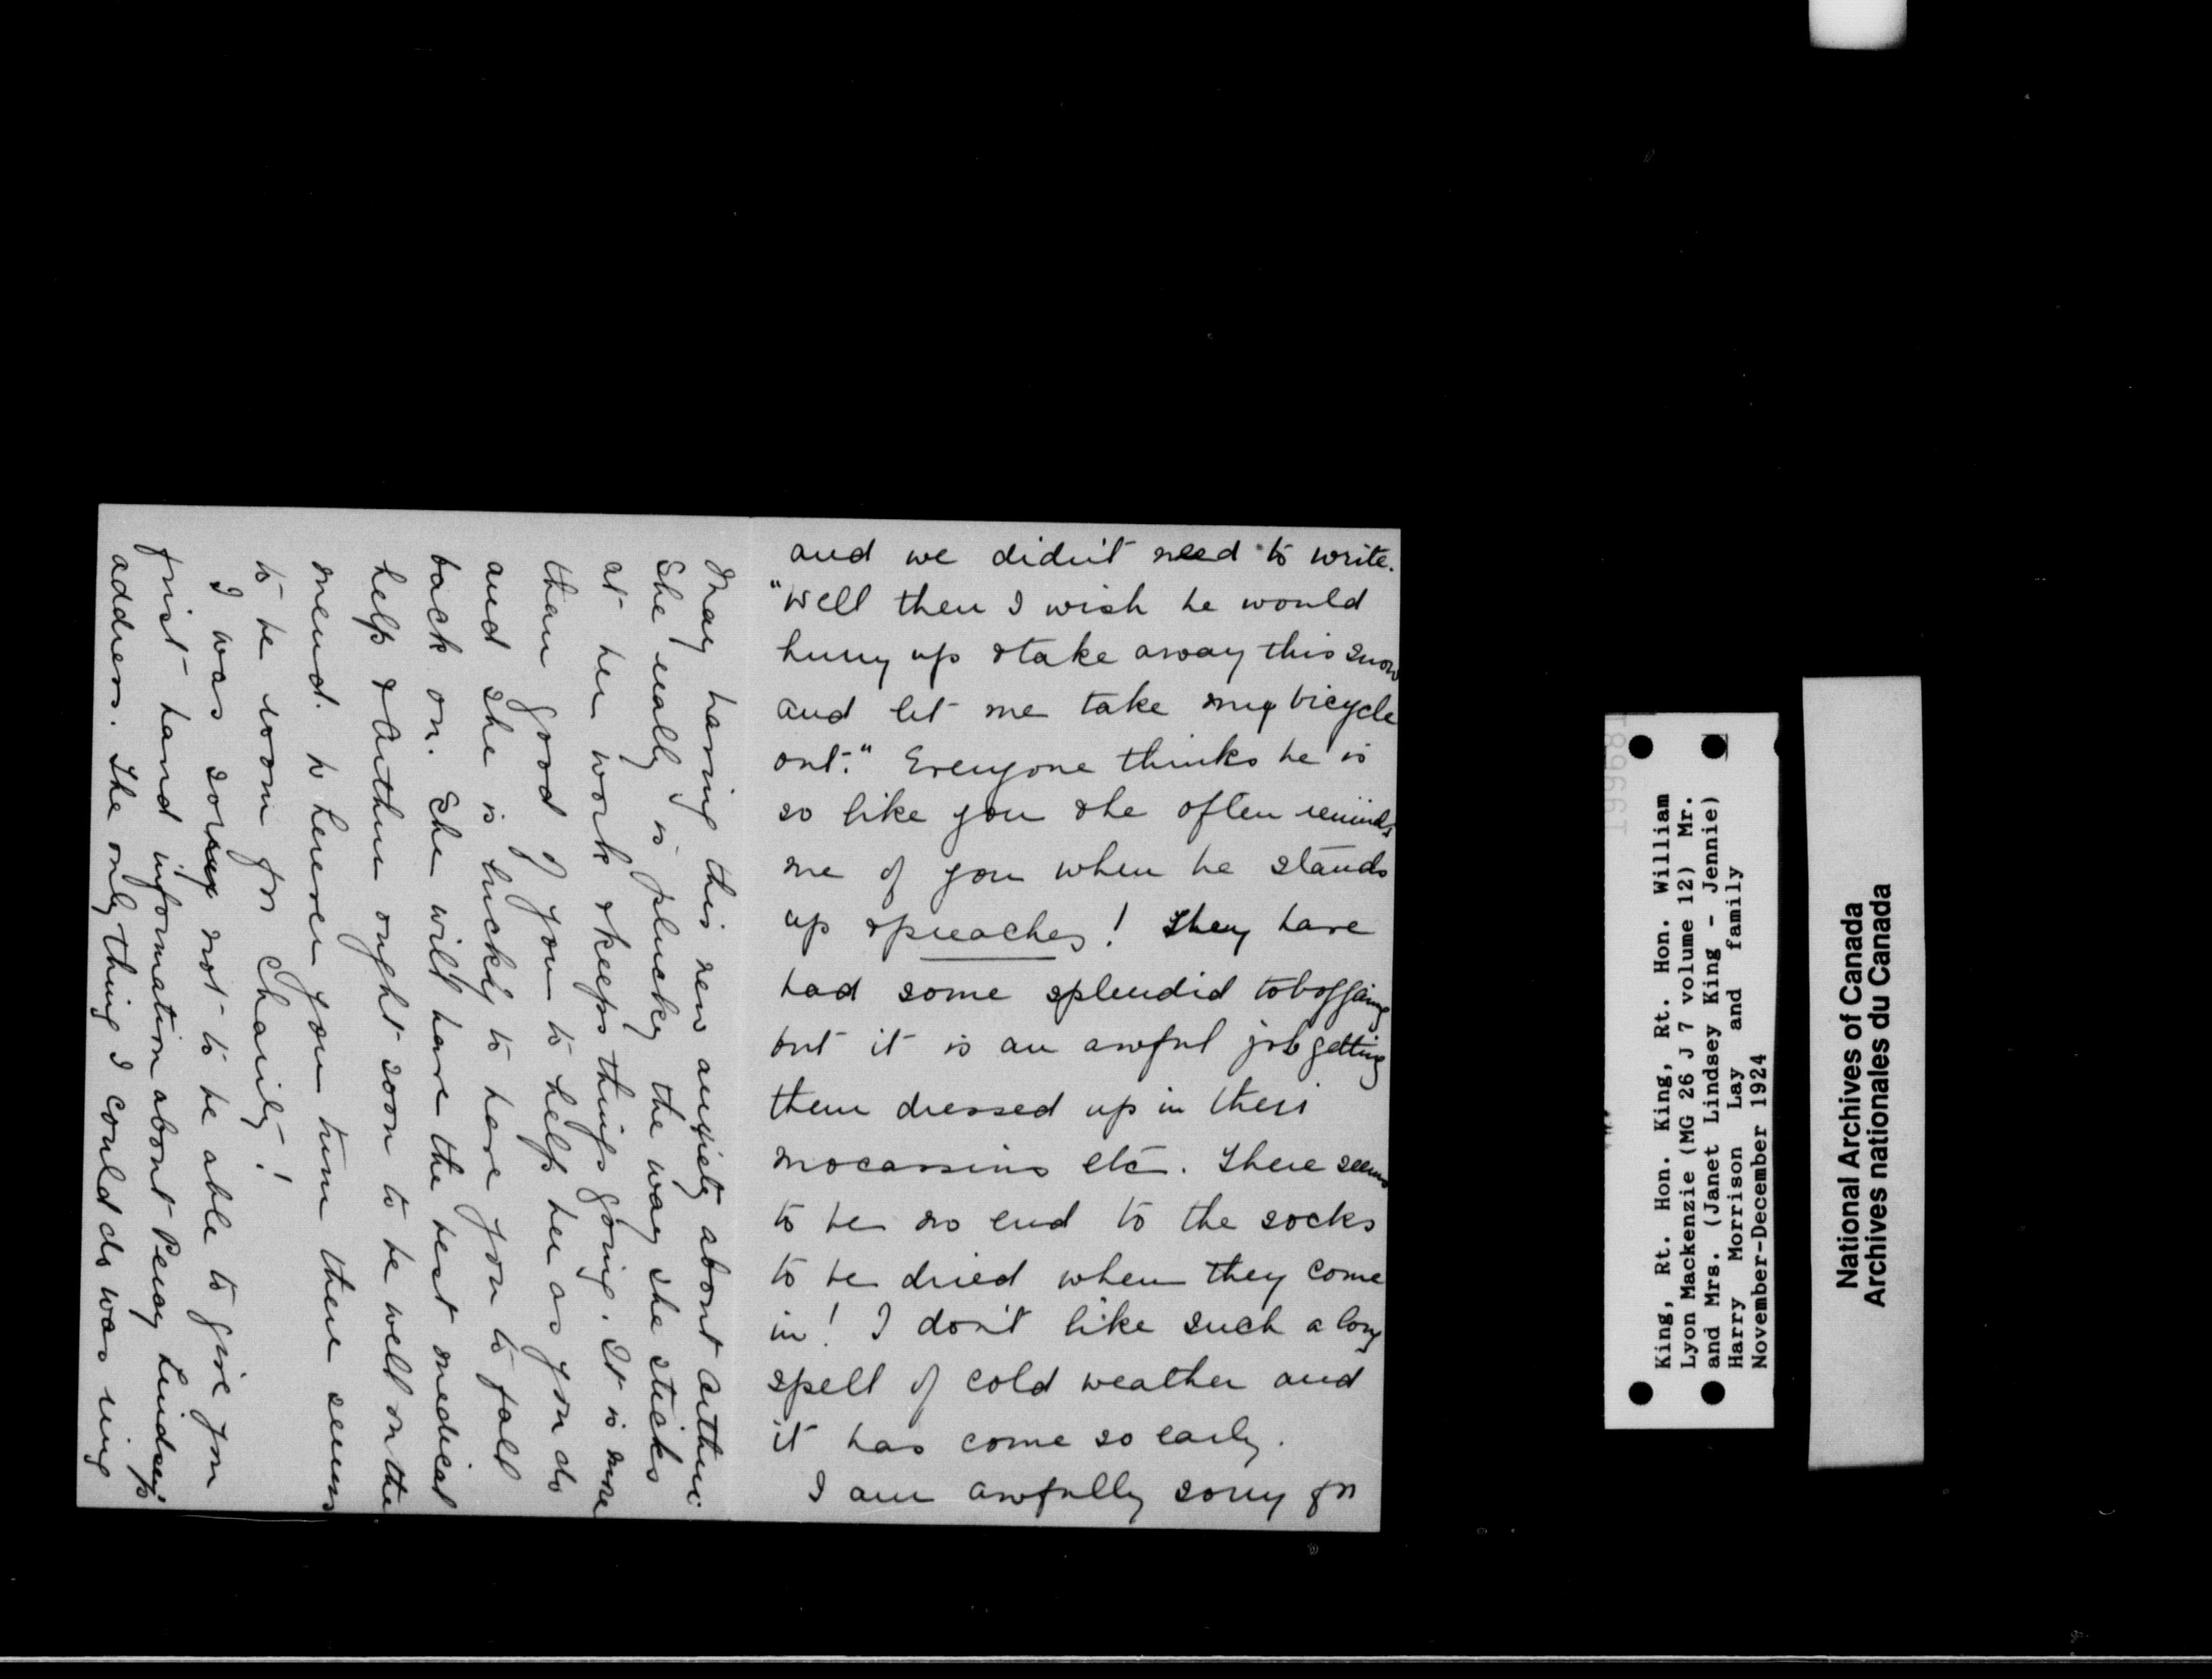 and we didn't need to write.
"Well then I wish he would
hurry up & take away this snow
and let me take my bicycle
out." Everyone thinks he is
so like you & he often reminds
me of you when he stands
up & preaches! They have
had some splendid tobogganing
but it is an awful job getting
them dressed up in their
mocassins etc. There seems
to be no end to the socks
to be dried when they come
in! I don't like such a long
spell of cold weather and
it has come so early.
I am awfully sorry for
May having this new anxiety about Arthur.
She really is plucky the way she sticks
at her work & keeps things going. It is more
than good of you to help her as you do
and she is lucky to have you to fall
back on. She will have the best medical
help & Arthur ought soon to be well on the
mend. Wherever you turn there seems
to be room for Charity!
I was sorry not to be able to give you
first hand information about Percy Lindsey's
address. The only thing I could do was ring
King, Rt. Hon. King, Rt. Hon. William
Lyon Mackenzie (MG 26 J 7 volume 12) Mr.
and Mrs. (Janet Lindsey King - Jennie)
Harry Morrison Lay and family
November-December 1924
National Archives of Canada
Archives nationales du Canada